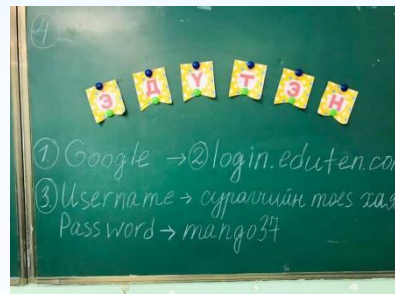 4
ЭДҮТЭН
① Google → ② login.eduten.co
③ Username → сурагчийн moes хая
Password → mango37